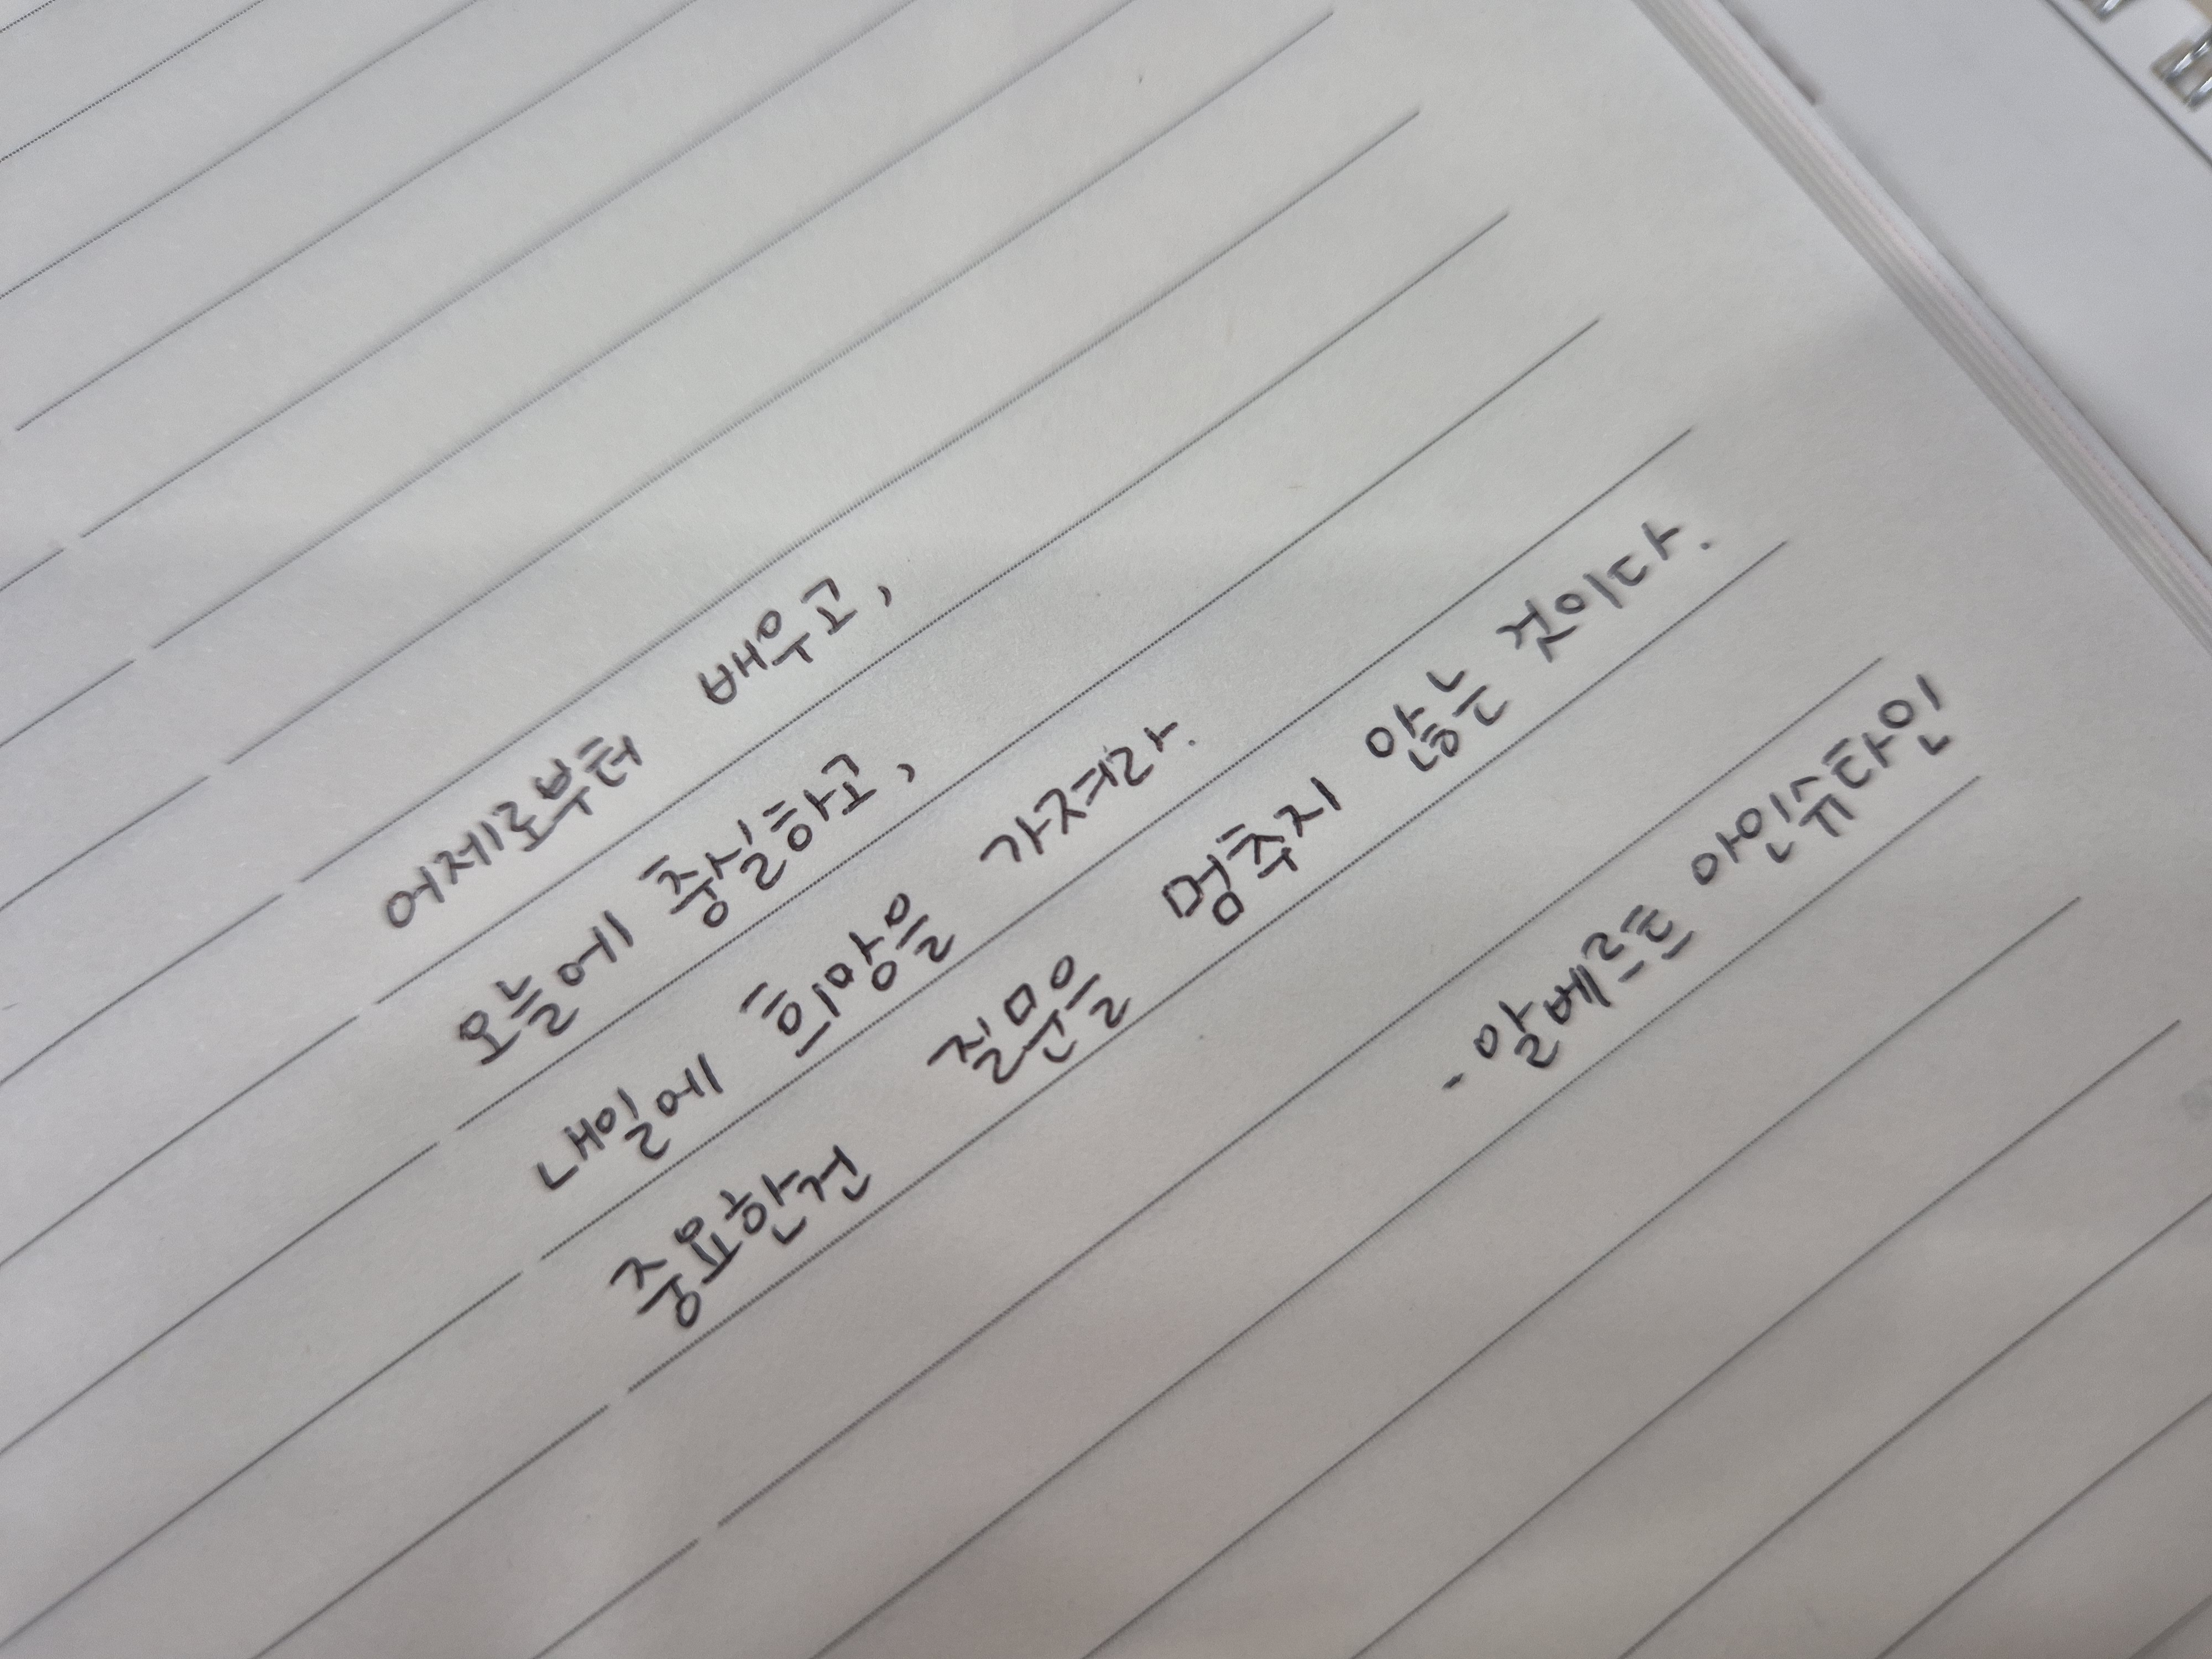 어제로부터 배우고,
오늘에 충실하고,
내일에 희망을 가져라.
중요한건 질문을 멈추지 않는 것이다.
- 알베르트 아인슈타인